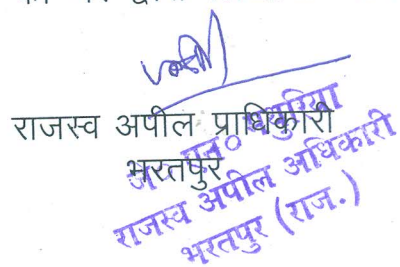 राजस्व अपील प्राधिकारी
भरतपुर
राजस्व अपील अधिकारी
भरतपुर (राज.)